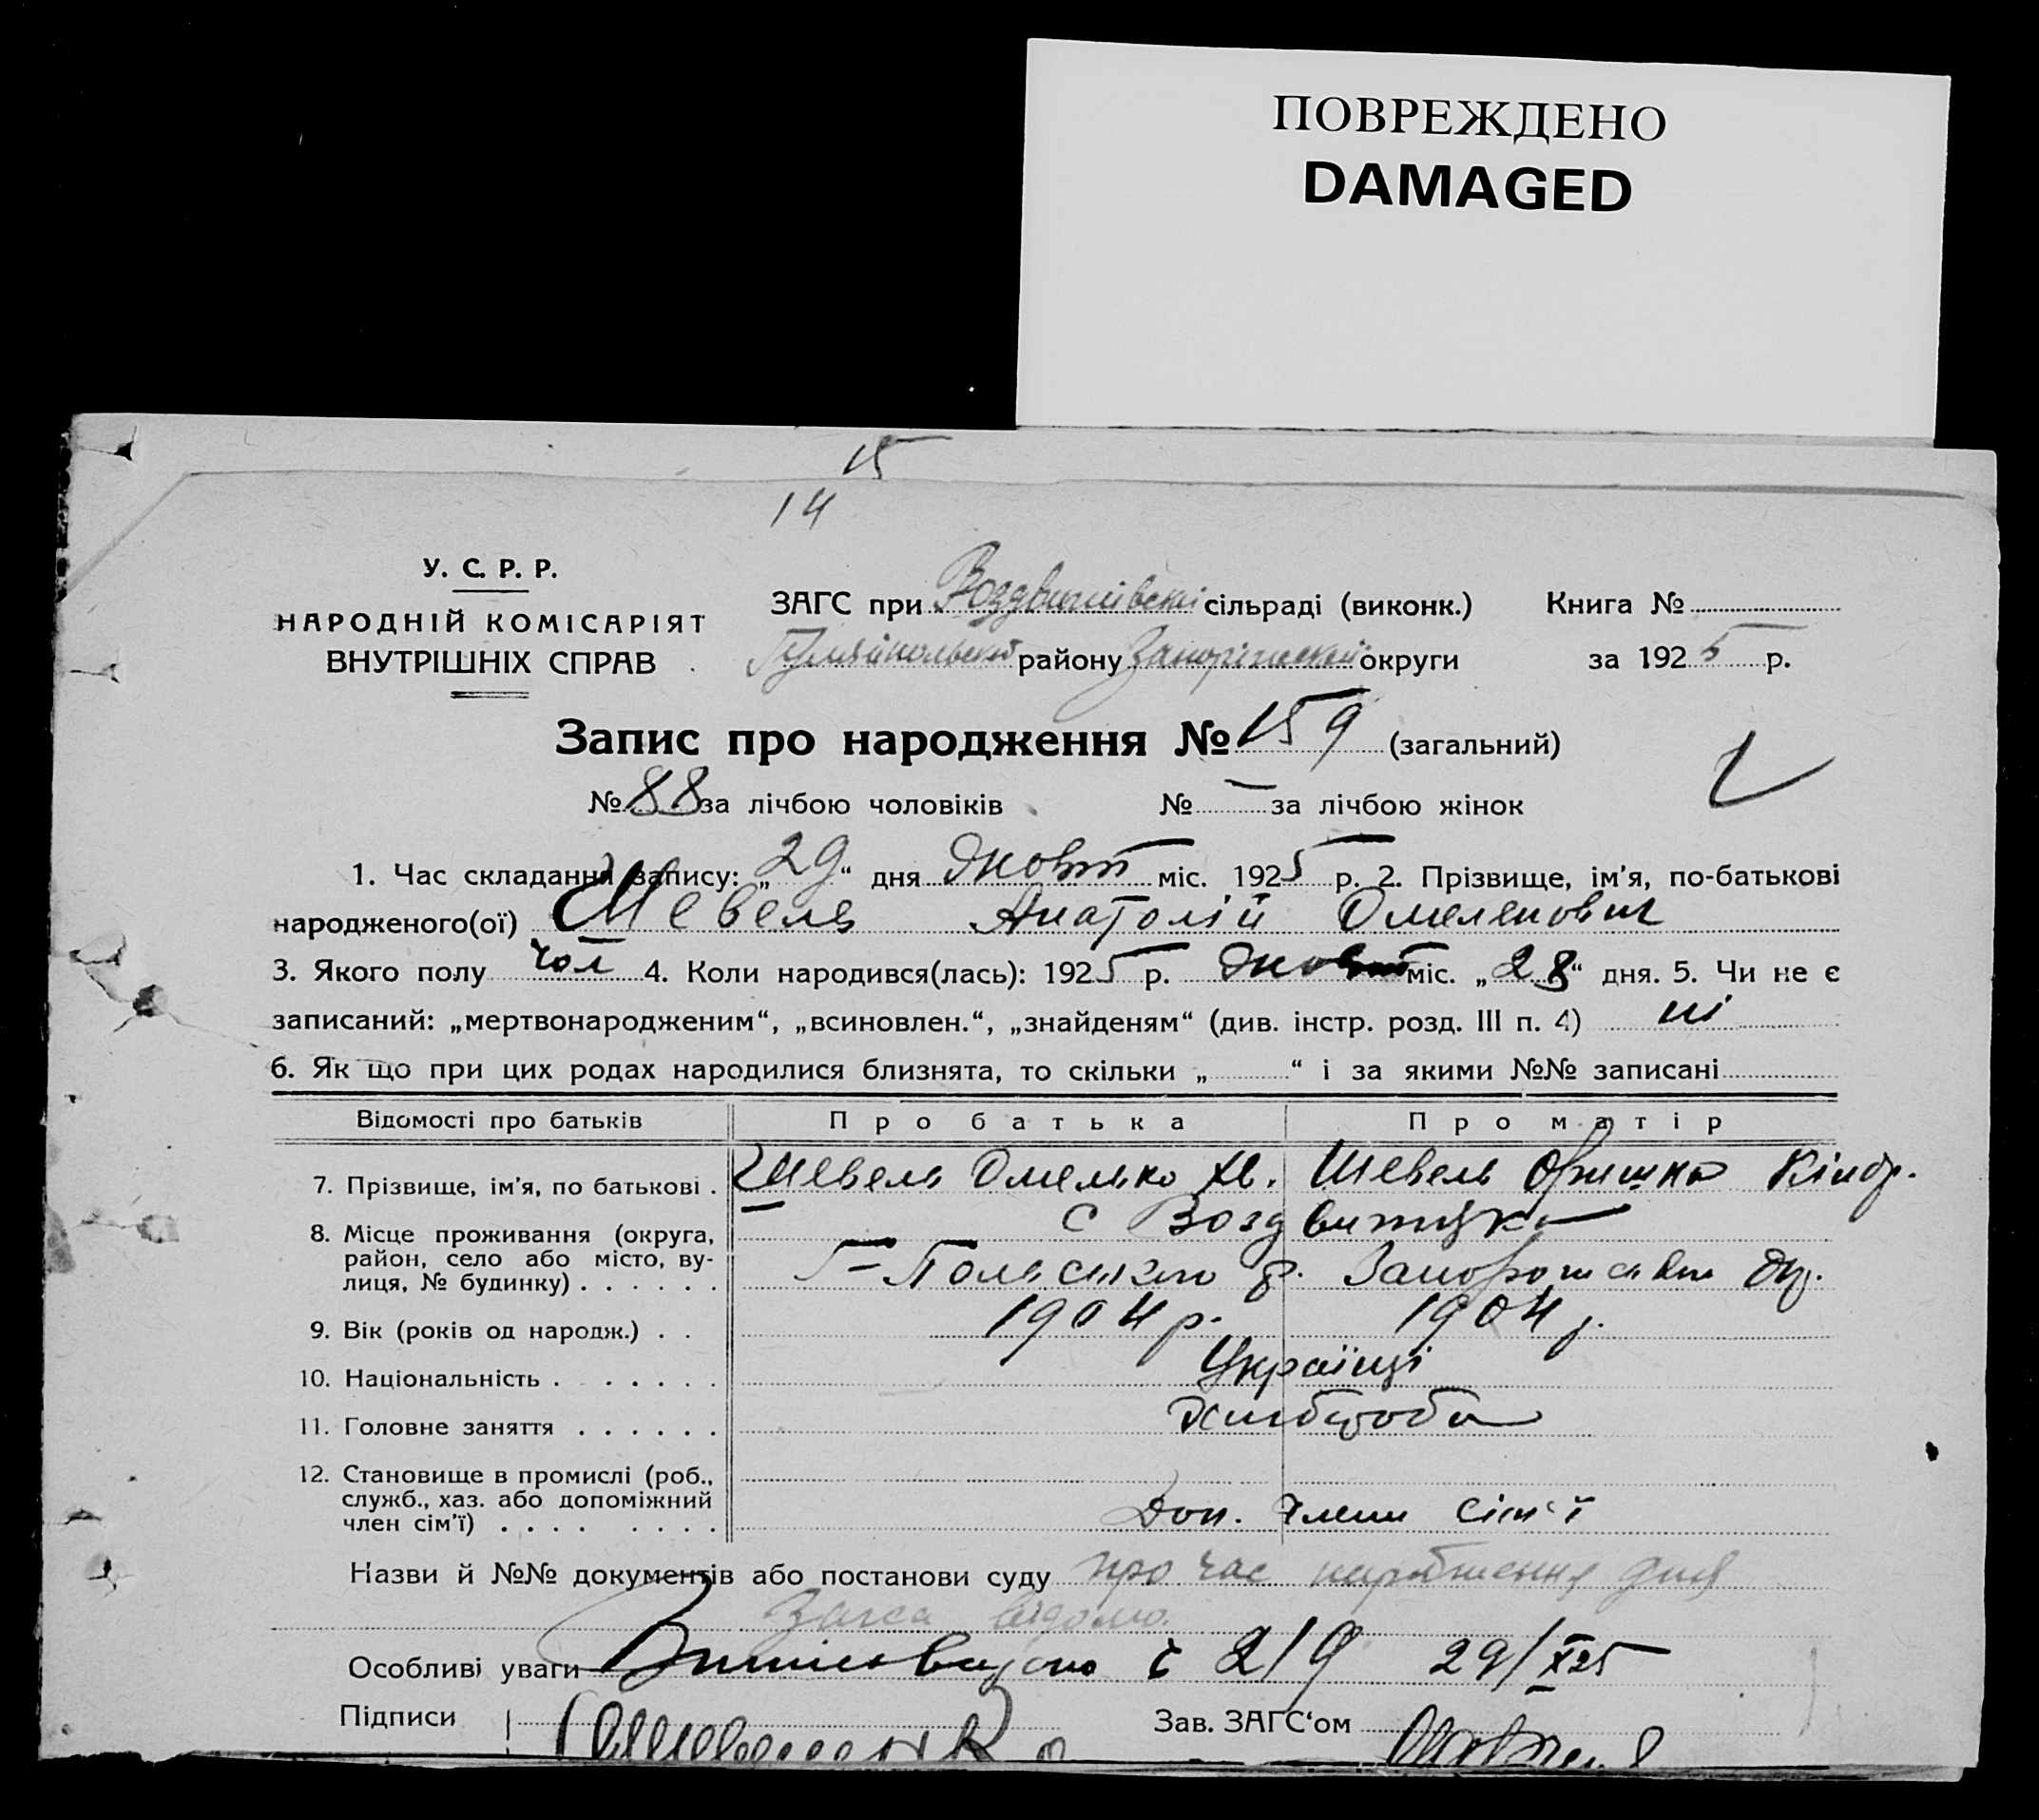 ПОВРЕЖДЕНО
DAMAGED
15
14
У. С. Р. Р.
НАРОДНІЙ КОМІСАРІЯТ
ВНУТРІШНІХ СПРАВ
ЗАГС при Воздвижівскі сільраді (виконк.) Книга №
Гуляйпольској району Запоріжској округи за 1925 р.
Запис про народження № 159 (загальний)
№ 88 за лічбою чоловіків № — за лічбою жінок
1. Час складання запису: „29“ дня жовт міс. 1925 р. 2. Прізвище, ім’я, по-батькові
народженого(ої) Шевель Анатолій Омелянович
3. Якого полу чол 4. Коли народився(лась): 1925 р. жовт міс. „28“ дня. 5. Чи не є
записаний: „мертвонародженим“, „всиновлен.“, „знайденям“ (див. інстр. розд. III п. 4) ні
6. Як що при цих родах народилися близнята, то скільки „ “ і за якими №№ записані
Відомості про батьків Про батька Про матір
7. Прізвище, ім’я, по батькові . Шевель Омелько Шевель Оришка Кіндр.
8. Місце проживання (округа, район, село або місто, вулиця, № будинку) . . . . . . с Воздвижка
Г-Польского р. Запорожськ
9. Вік (років од народж.) . . 1904 р. 1904 р.
10. Національність . . . . . . Українці
11. Головне заняття . . . . . . Хлібороби
12. Становище в промислі (роб., служб., хаз. або допоміжний член сім’ї) . . . . . . . . Доп. члени сім'ї
Назви й №№ документів або постанови суду про час дня
Загса відомо
Особливі уваги 2/9 29/X 25
Підписи Зав. ЗАГС‘ом